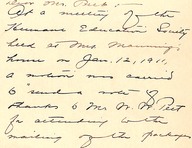 Dear Mrs. Peet:
At a meeting of the
Humane Education Society
held at Mrs. Manning's
home on Jan. 12, 1911,
a motion was carried
to send a note of
thanks to Mr. W. Peet
for attending to the
mailing of the